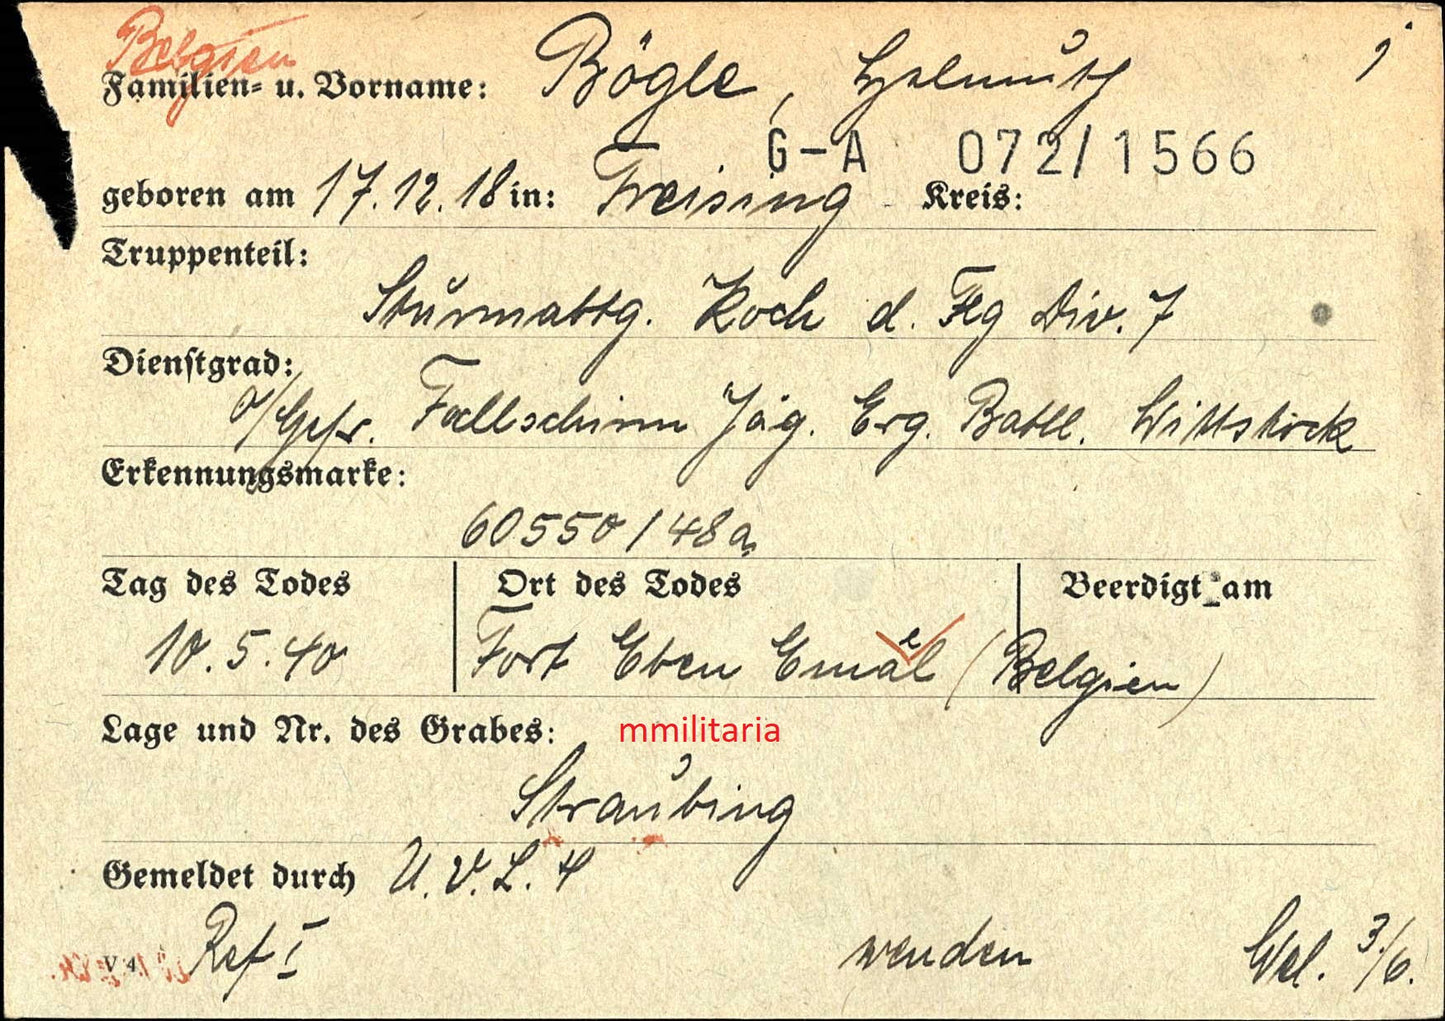 Belgien
Familien- u. Vorname: Bögle, Helmuth
G-A 072/1566
geboren am 17.12.18 in: Freising Kreis:
Truppenteil:
Sturmabtg. Koch d. Flg Div. 7
Dienstgrad:
O/Gefr. Fallschirm Jäg. Erg. Batll. Wittstock
Erkennungsmarke:
60550/48a
Tag des Todes Ort des Todes Beerdigt am
10.5.40 Fort Eben Emael (Belgien)
Lage und Nr. des Grabes: mmilitaria
Straubing
Gemeldet durch U.V.L. 4
V 4 Ref I wenden 3/6.